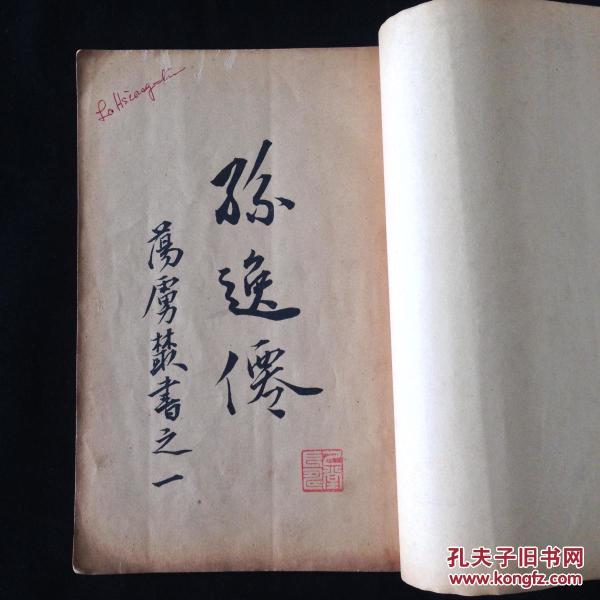 Lo Hsiang-lin
孫逸僊
蕩虜叢書之一
孔夫子旧书网
www.kongfz.com